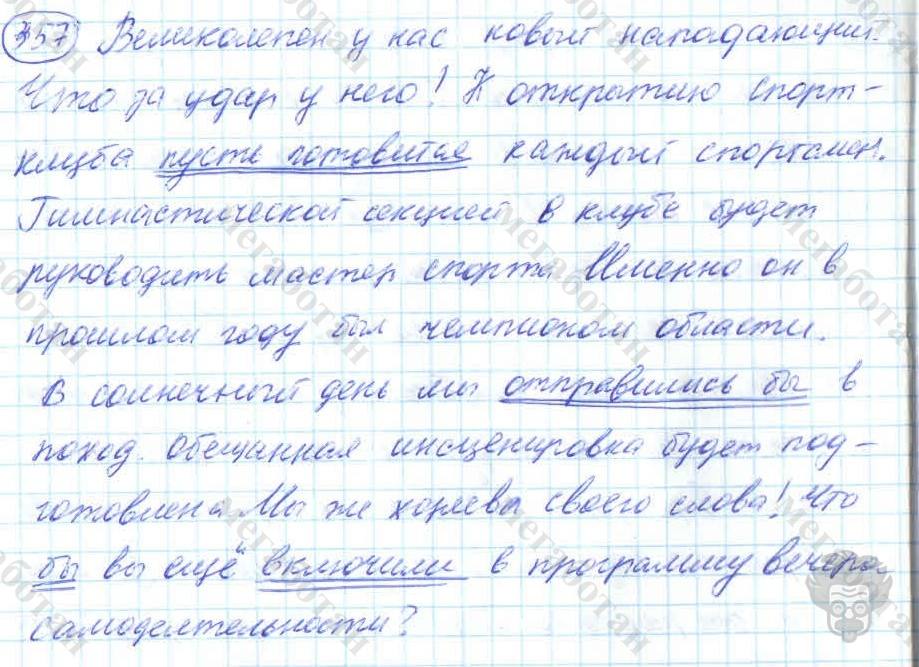 357 Великолепен у нас новый нападающий.
Что за удар у него! К открытию спорт-
клуба пусть готовится каждый спортсмен.
Гимнастической секцией в клубе будет
руководить мастер спорта Именно он в
прошлом году был чемпионом области.
В солнечный день мы отправились бы в
поход. Обещанная инсценировка будет под-
готовлена Мы же хозяева своего слова! Что
бы вы ещё включили в программу вечера
самодеятельности?
мегаботан